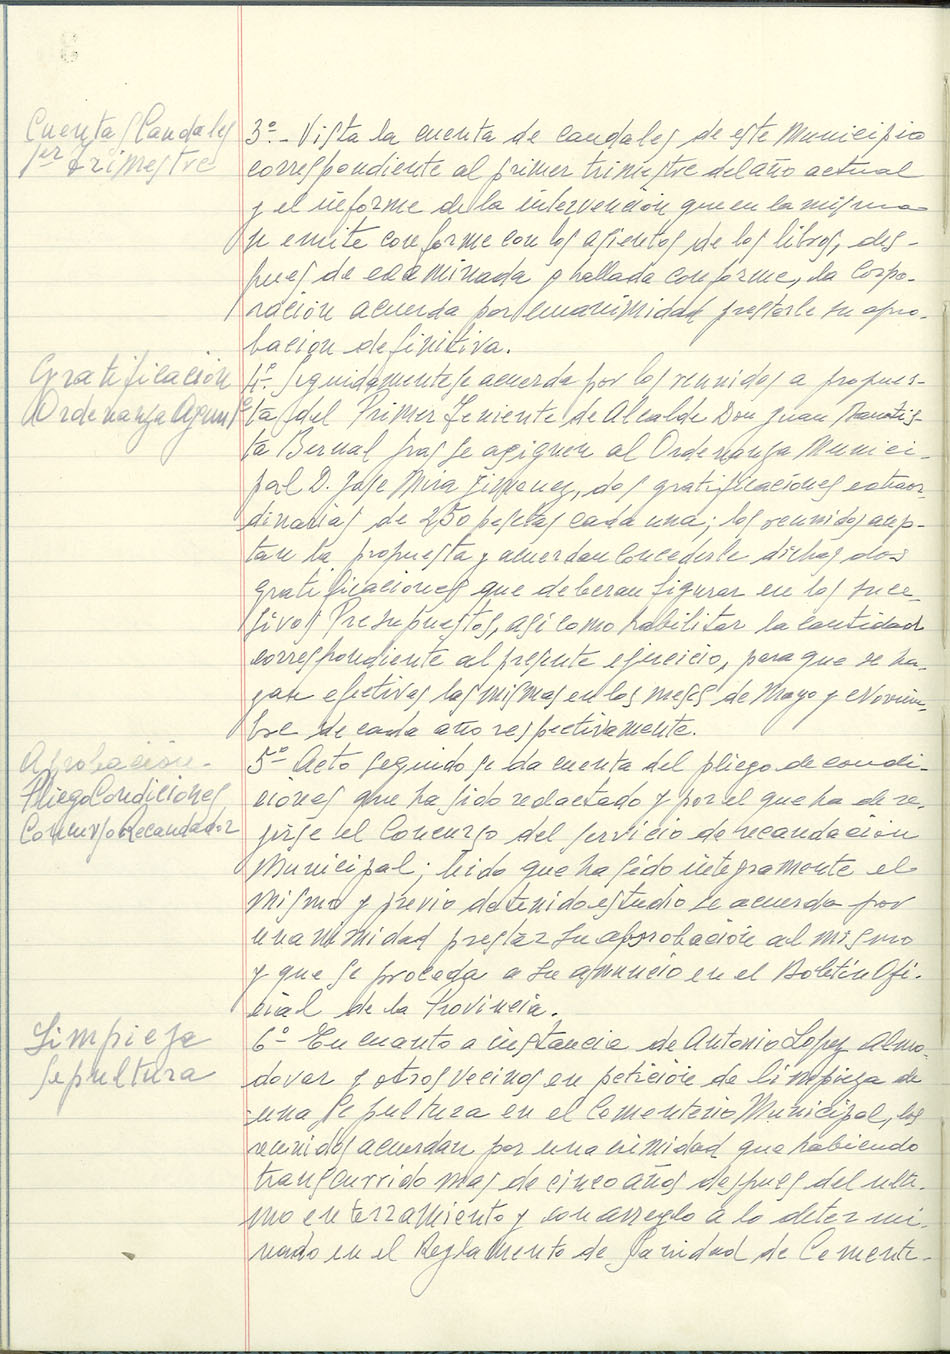 Cuentas Caudales
1er Trimestre
3º - Vista la cuenta de caudales de este Municipio
correspondiente al primer trimestre del año actual
y el informe de la intervención que en la misma
se emite conforme con los asientos de los libros, des-
pues de examinada y hallada conforme, la Corpo-
ración acuerda por unanimidad prestarle su apro-
bación definitiva.
Gratificación
Ordenanza Ayunt
4º- Seguidamente se acuerda por los reunidos a propues-
ta del Primer Teniente de Alcalde Don Juan Bautis-
ta Bernal se asignen al Ordenanza Munici-
pal D. Jose Mira Jimenez, dos gratificaciónes extraor-
dinarias de 250 pesetas cada una; los reunidos acep-
tan la propuesta y acuerdan concederle dichas dos
gratificaciones que deberan figurar en los suce-
sivos Presupuestos, asi como habilitar la cantidad
correspondiente al presente ejercicio, para que se ha-
gan efectivas las mismas en los meses de Mayo y Noviem-
bre de cada año respectivamente.
Aprobación-
Pliego Condiciones
Concurso Recaudador
5º- Acto seguido se da cuenta del pliego de condi-
ciones que ha sido redactado y por el que ha de re-
jirse el Concurso del servicio de recaudación
Municipal; leido que ha sido integramente el
mismo y previo detenido estudio se acuerda por
unanimidad prestar su aprobación al mismo
y que se proceda a su anuncio en el Boletin Ofi-
cial de la Provincia.
Limpieza
Sepultura
6º- En cuanto a instancia de Antonio Lopez Almo-
dovar y otros vecinos en petición de limpieza de
una sepultura en el Cementerio Municipal, los
reunidos acuerdan por unanimidad que habiendo
transcurrido mas de cinco años despues del ulti-
mo enterramiento y con arreglo a lo determi-
nado en el Reglamento de Sanidad de Cemente-